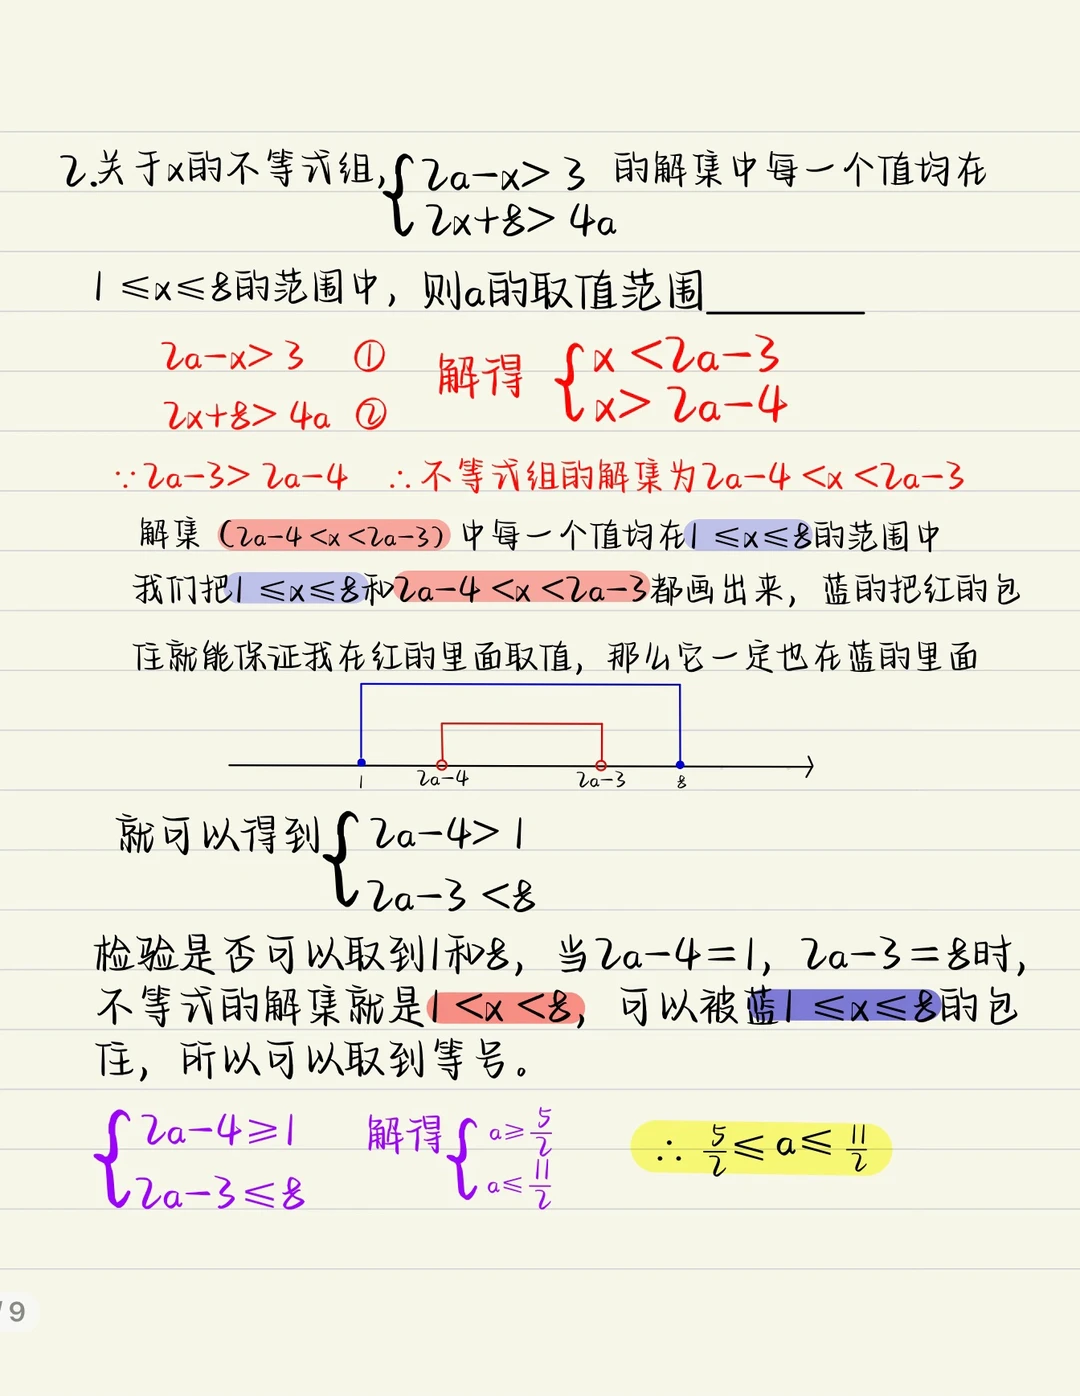 2.关于x的不等式组,{2a-x>3 的解集中每一个值均在
2x+8>4a
1≤x≤8的范围中，则a的取值范围______
2a-x>3 ① 解得 {x<2a-3
2x+8>4a ② x>2a-4
∵2a-3>2a-4 ∴不等式组的解集为2a-4<x<2a-3
解集(2a-4<x<2a-3)中每一个值均在1≤x≤8的范围中
我们把1≤x≤8和2a-4<x<2a-3都画出来，蓝的把红的包
住就能保证我在红的里面取值，那么它一定也在蓝的里面
1 2a-4 2a-3 8
就可以得到{2a-4>1
2a-3<8
检验是否可以取到1和8，当2a-4=1，2a-3=8时，
不等式的解集就是1<x<8，可以被蓝1≤x≤8的包
住，所以可以取到等号。
{2a-4≥1 解得{a≥5/2 ∴5/2≤a≤11/2
2a-3≤8 a≤11/2
/9